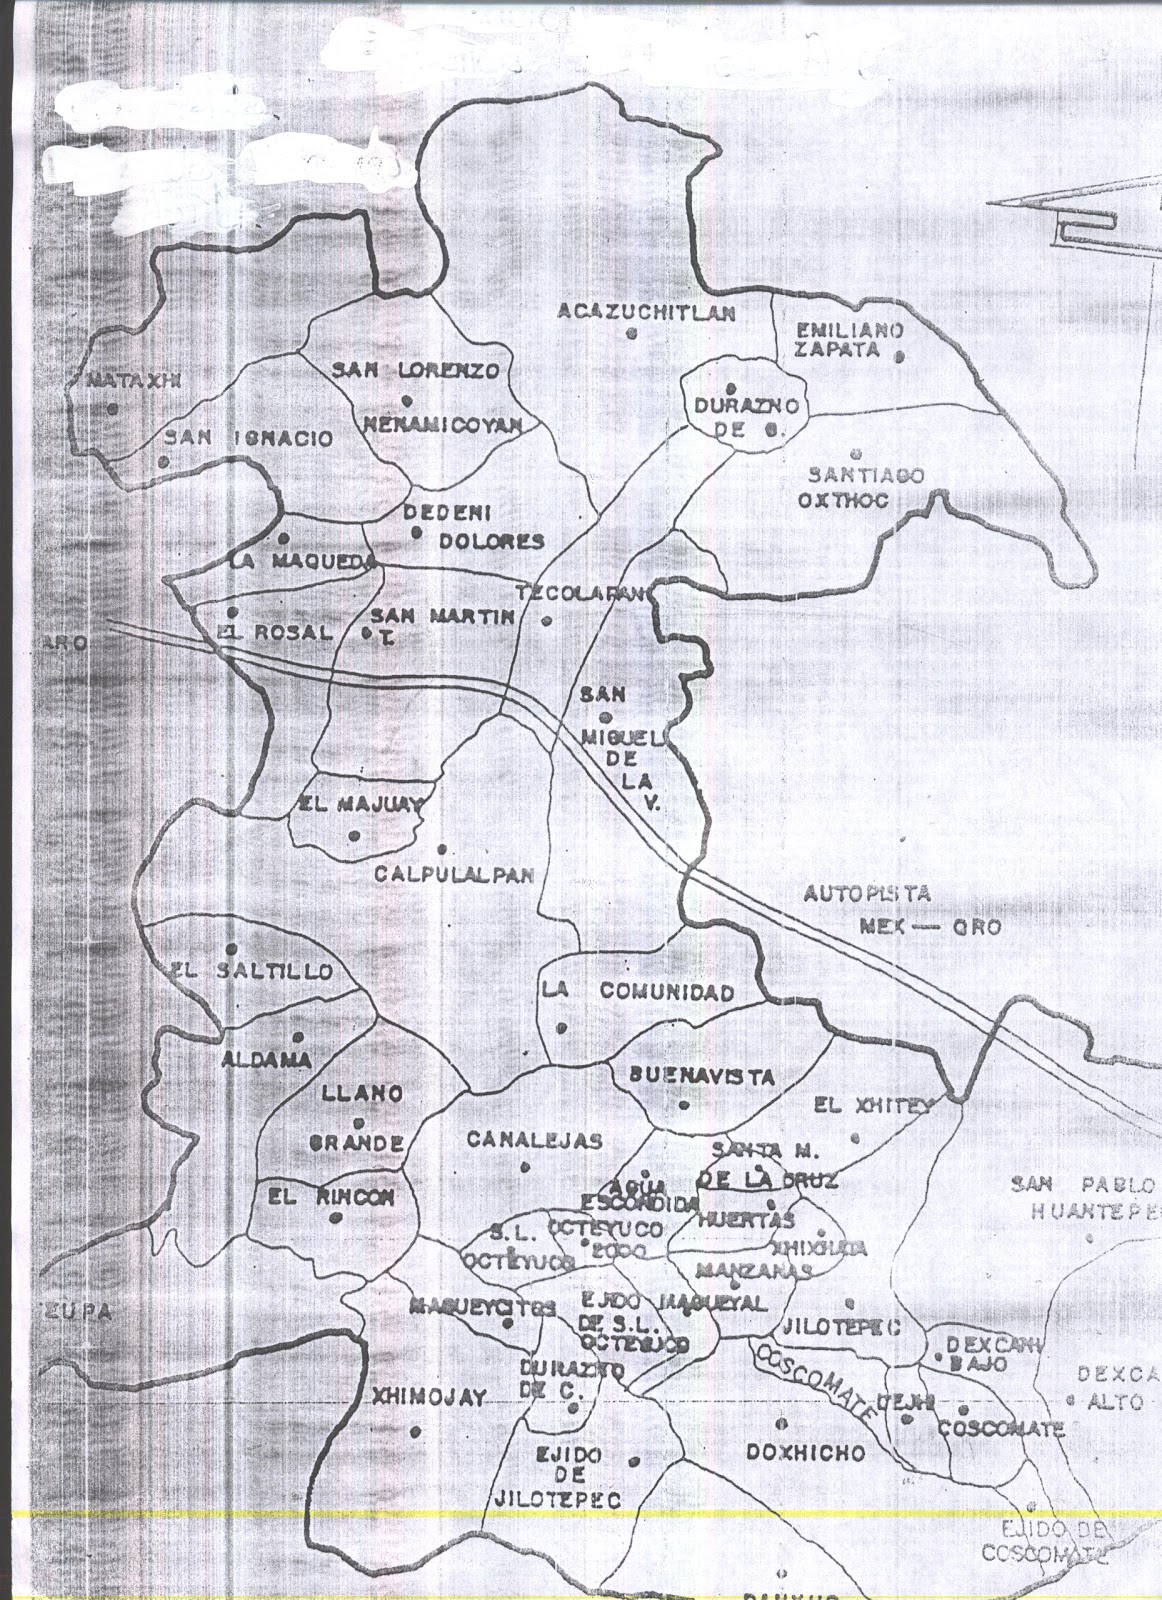 ACAZUCHITLAN
EMILIANO
ZAPATA
SAN LORENZO
NENAMICOYAN
MATAXHI
SAN IGNACIO
DURAZNO
DE G.
SANTIAGO
OXTHOC
DEDENI
DOLORES
LA MAQUEDA
TECOLAPAN
EL ROSAL
SAN MARTIN
T.
ARO
SAN
MIGUEL
DE
LA
V.
EL MAJUAY
CALPULALPAN
AUTOPISTA
MEX — QRO
EL SALTILLO
LA COMUNIDAD
ALDAMA
BUENAVISTA
LLANO
GRANDE
EL XHITEY
CANALEJAS
SANTA M.
DE LA CRUZ
EL RINCON
AGUA
ESCONDIDA
SAN PABLO
HUANTEPE
HUERTAS
S.L.
OCTEYUCO
OCTEYUCO
2000
XHIXHATA
MANZANAS
MAGUEYCITOS
EJIDO
DE S.L.
OCTEYUCO
MAGUEYAL
JILOTEPEC
EUPA
DEXCANI
BAJO
DURAZNO
DE C.
COSCOMATE
DEXCA
ALTO
XHIMOJAY
DEJHI
COSCOMATE
EJIDO
DE
JILOTEPEC
DOXHICHO
EJIDO DE
COSCOMATE